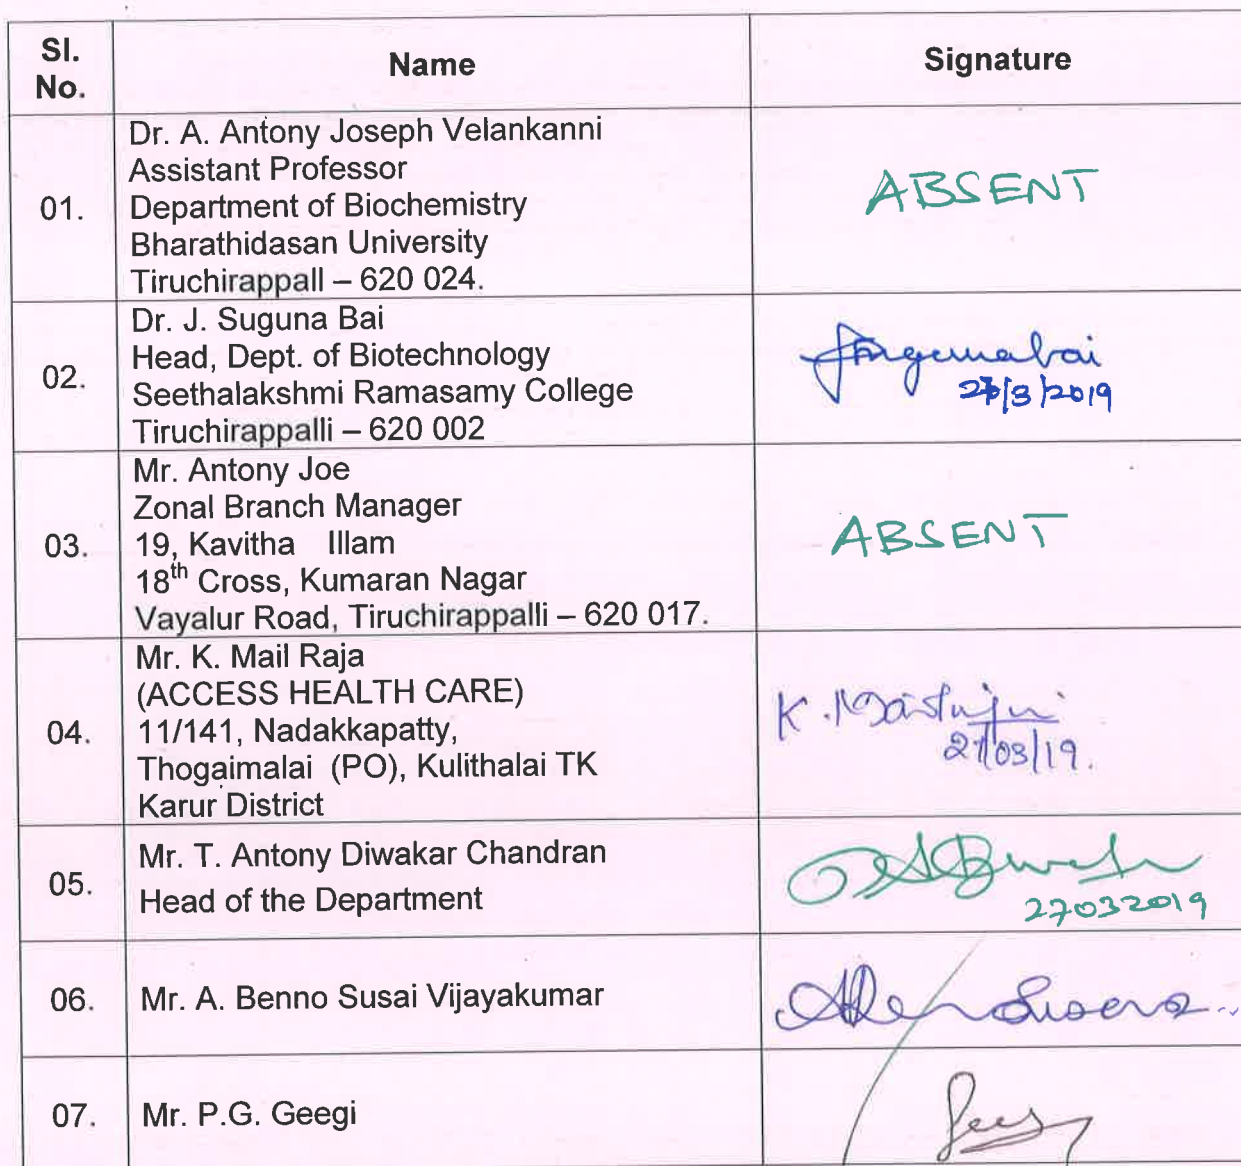 Sl. No.
Name
Signature
01.
Dr. A. Antony Joseph Velankanni
Assistant Professor
Department of Biochemistry
Bharathidasan University
Tiruchirappall – 620 024.
ABSENT
02.
Dr. J. Suguna Bai
Head, Dept. of Biotechnology
Seethalakshmi Ramasamy College
Tiruchirappalli – 620 002
27/3/2019
03.
Mr. Antony Joe
Zonal Branch Manager
19, Kavitha Illam
18th Cross, Kumaran Nagar
Vayalur Road, Tiruchirappalli – 620 017.
ABSENT
04.
Mr. K. Mail Raja
(ACCESS HEALTH CARE)
11/141, Nadakkapatty,
Thogaimalai (PO), Kulithalai TK
Karur District
K.
27/03/19.
05.
Mr. T. Antony Diwakar Chandran
Head of the Department
27032019
06.
Mr. A. Benno Susai Vijayakumar
07.
Mr. P.G. Geegi